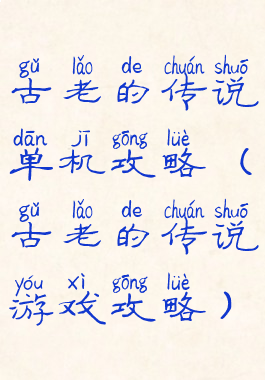 gǔ lǎo de chuán shuō
古老的传说
dān jī gōng lüè
单机攻略（
gǔ lǎo de chuán shuō
古老的传说
yóu xì gōng lüè
游戏攻略）